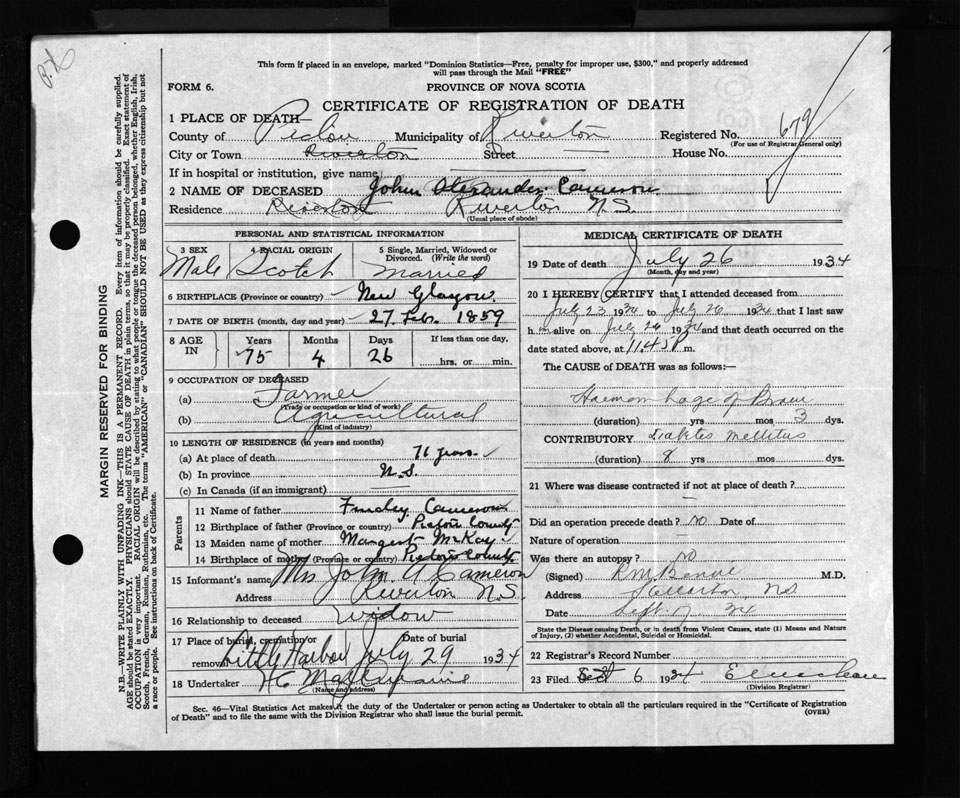 This form if placed in an envelope, marked "Dominion Statistics—Free, penalty for improper use, $300," and properly addressed
will pass through the Mail "FREE"
FORM 6.
PROVINCE OF NOVA SCOTIA
CERTIFICATE OF REGISTRATION OF DEATH
1 PLACE OF DEATH—
County of Pictou Municipality of Riverton Registered No. 679
(For use of Registrar General only)
City or Town Riverton Street — House No.
If in hospital or institution, give name
2 NAME OF DECEASED John Alexander Cameron
Residence Riverton Riverton N.S.
(Usual place of abode)
PERSONAL AND STATISTICAL INFORMATION
3 SEX 4 RACIAL ORIGIN 5 Single, Married, Widowed or
Divorced. (Write the word)
Male Scotch Married
6 BIRTHPLACE (Province or country) New Glasgow
7 DATE OF BIRTH (month, day and year) 27 Feb. 1859
8 AGE IN Years Months Days If less than one day,
75 4 26 hrs. or min.
9 OCCUPATION OF DECEASED
(a) Farmer
(Trade or occupation or kind of work)
(b) Agricultural
(Kind of industry)
10 LENGTH OF RESIDENCE (in years and months)
(a) At place of death 71 years
(b) In province N.S.
(c) In Canada (if an immigrant) —
Parents
11 Name of father Findley Cameron
12 Birthplace of father (Province or country) Pictou County
13 Maiden name of mother Margaret McKay
14 Birthplace of mother (Province or country) Pictou County
15 Informant's name Mrs John A Cameron
Address Riverton N.S.
16 Relationship to deceased Widow
17 Place of burial, cremation or Date of burial
removal Little Harbor July 29 1934
18 Undertaker
(Name and address)
MEDICAL CERTIFICATE OF DEATH
19 Date of death July 26 1934
(Month, day and year)
20 I HEREBY CERTIFY that I attended deceased from
July 23 1934 to July 26 1934 that I last saw
him alive on July 26 1934 and that death occurred on
date stated above, at 11.45 P m.
The CAUSE of DEATH was as follows:—
Haemorrhage of Brain
(duration) yrs mos 3 dys.
CONTRIBUTORY Diabetes Mellitus
(duration) 8 yrs mos dys.
21 Where was disease contracted if not at place of death?
—
Did an operation precede death? no Date of
Nature of operation —
Was there an autopsy? no
(Signed) M.D.
Address Stellarton, N.S.
Date Sept. 34
State the Disease causing Death, or in death from Violent Causes, state (1) Means and Nature
of Injury, (2) whether Accidental, Suicidal or Homicidal.
22 Registrar's Record Number
23 Filed Sept 6 1934
(Division Registrar)
Sec. 46—Vital Statistics Act makes it the duty of the Undertaker or person acting as Undertaker to obtain all the particulars required in the "Certificate of Registration
of Death" and to file the same with the Division Registrar who shall issue the burial permit.
(OVER)
MARGIN RESERVED FOR BINDING
N.B.—WRITE PLAINLY WITH UNFADING INK—THIS IS A PERMANENT RECORD. Every item of information should be carefully supplied.
AGE should be stated EXACTLY. PHYSICIANS should STATE CAUSE OF DEATH in plain terms, so that it may be properly classified. Exact statement of
OCCUPATION is very important. RACIAL ORIGIN will be described by stating to what people or tongue the deceased person belonged, whether English, Irish,
Scotch, French, German, Russian, Ruthenian, etc. The terms "AMERICAN" or "CANADIAN" SHOULD NOT BE USED as they express citizenship but not
a race or people. See instructions on back of Certificate.